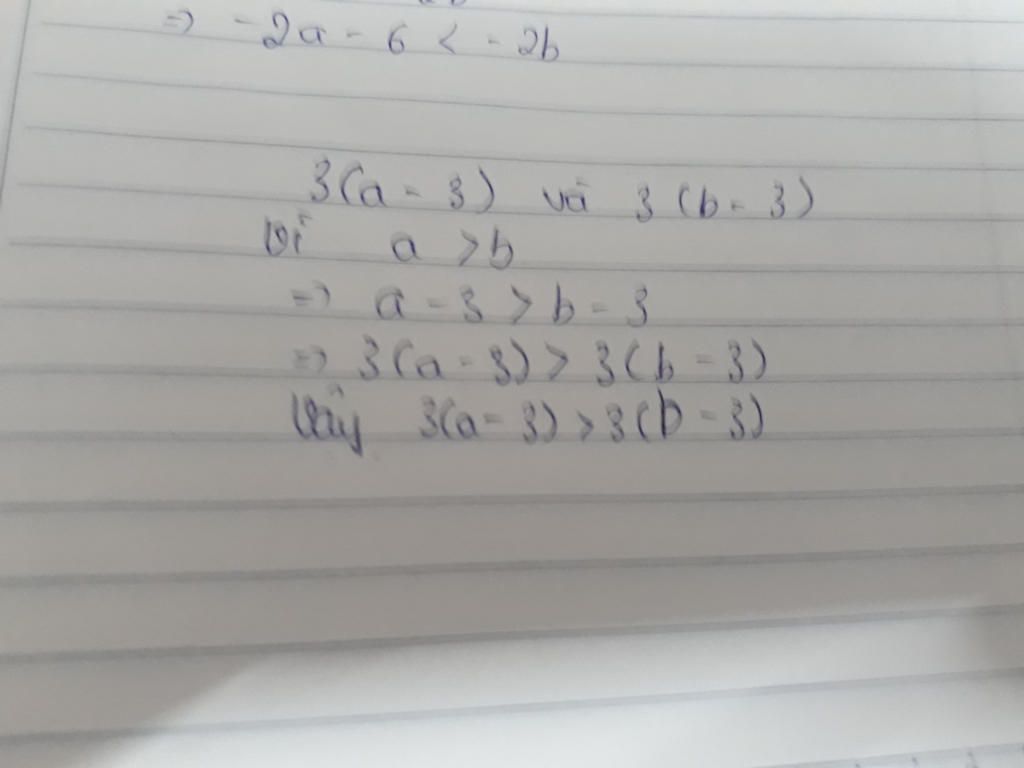 => -2a - 6 < -2b
3(a - 3) và 3(b - 3)
Vì a > b
=> a - 3 > b - 3
=> 3(a - 3) > 3(b - 3)
Vậy 3(a - 3) > 3(b - 3)